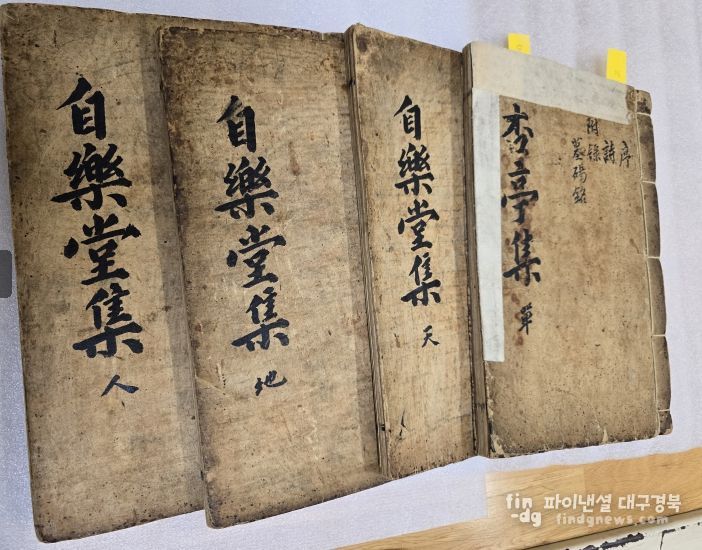 自樂堂集
人
自樂堂集
地
自樂堂集
天
杏亭集
單
序
詩
附錄
墓碣銘
fin dg 파이낸셜 대구경북
findgnews.com